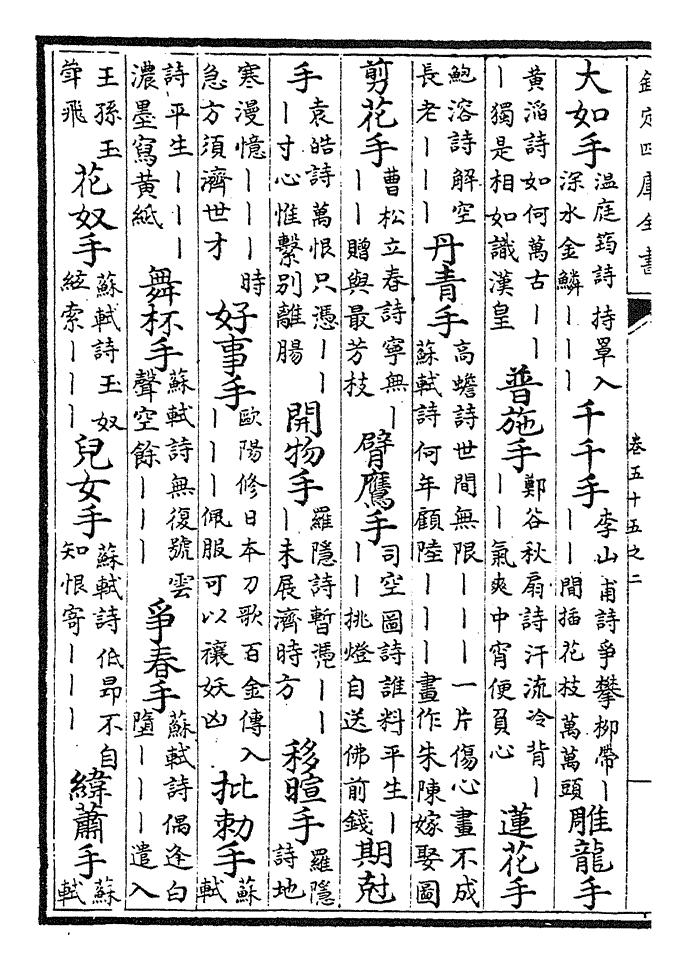 欽定四庫全書
卷五十五之二
大如手 溫庭筠詩持罩入深水金鱗丨丨丨 千千手 李山甫詩爭攀柳帶丨丨丨間插花枝萬萬頭 雕龍手
黃滔詩如何萬古丨丨丨獨是相如識漢皇 普施手 鄭谷秋扇詩汗流冷背丨丨丨氣爽中宵便負心 蓮花手
鮑溶詩解空長老丨丨丨 丹青手 高蟾詩世間無限丨丨丨一片傷心畫不成蘇軾詩何年顧陸丨丨丨畫作朱陳嫁娶圖
剪花手 曹松立春詩寧無丨丨丨贈與最芳枝 臂鷹手 司空圖詩誰料平生丨丨丨挑燈自送佛前錢 期尅
手 袁皓詩萬恨只憑丨丨丨寸心惟繫別離腸 開物手 羅隱詩暫憑丨丨丨未展濟時方 移暄手 羅隱詩地
寒漫憶丨丨丨時急方須濟世才 好事手 歐陽修日本刀歌百金傳入丨丨丨佩服可以禳妖凶 批勅手 蘇軾
詩平生丨丨丨濃墨寫黃紙 舞杯手 蘇軾詩無復號雲聲空餘丨丨丨 爭春手 蘇軾詩偶逢白墮丨丨丨遣入
王孫玉斝飛 花奴手 蘇軾詩玉奴絃索丨丨丨 兒女手 蘇軾詩低昂不自知恨寄丨丨丨 緯蕭手 蘇軾